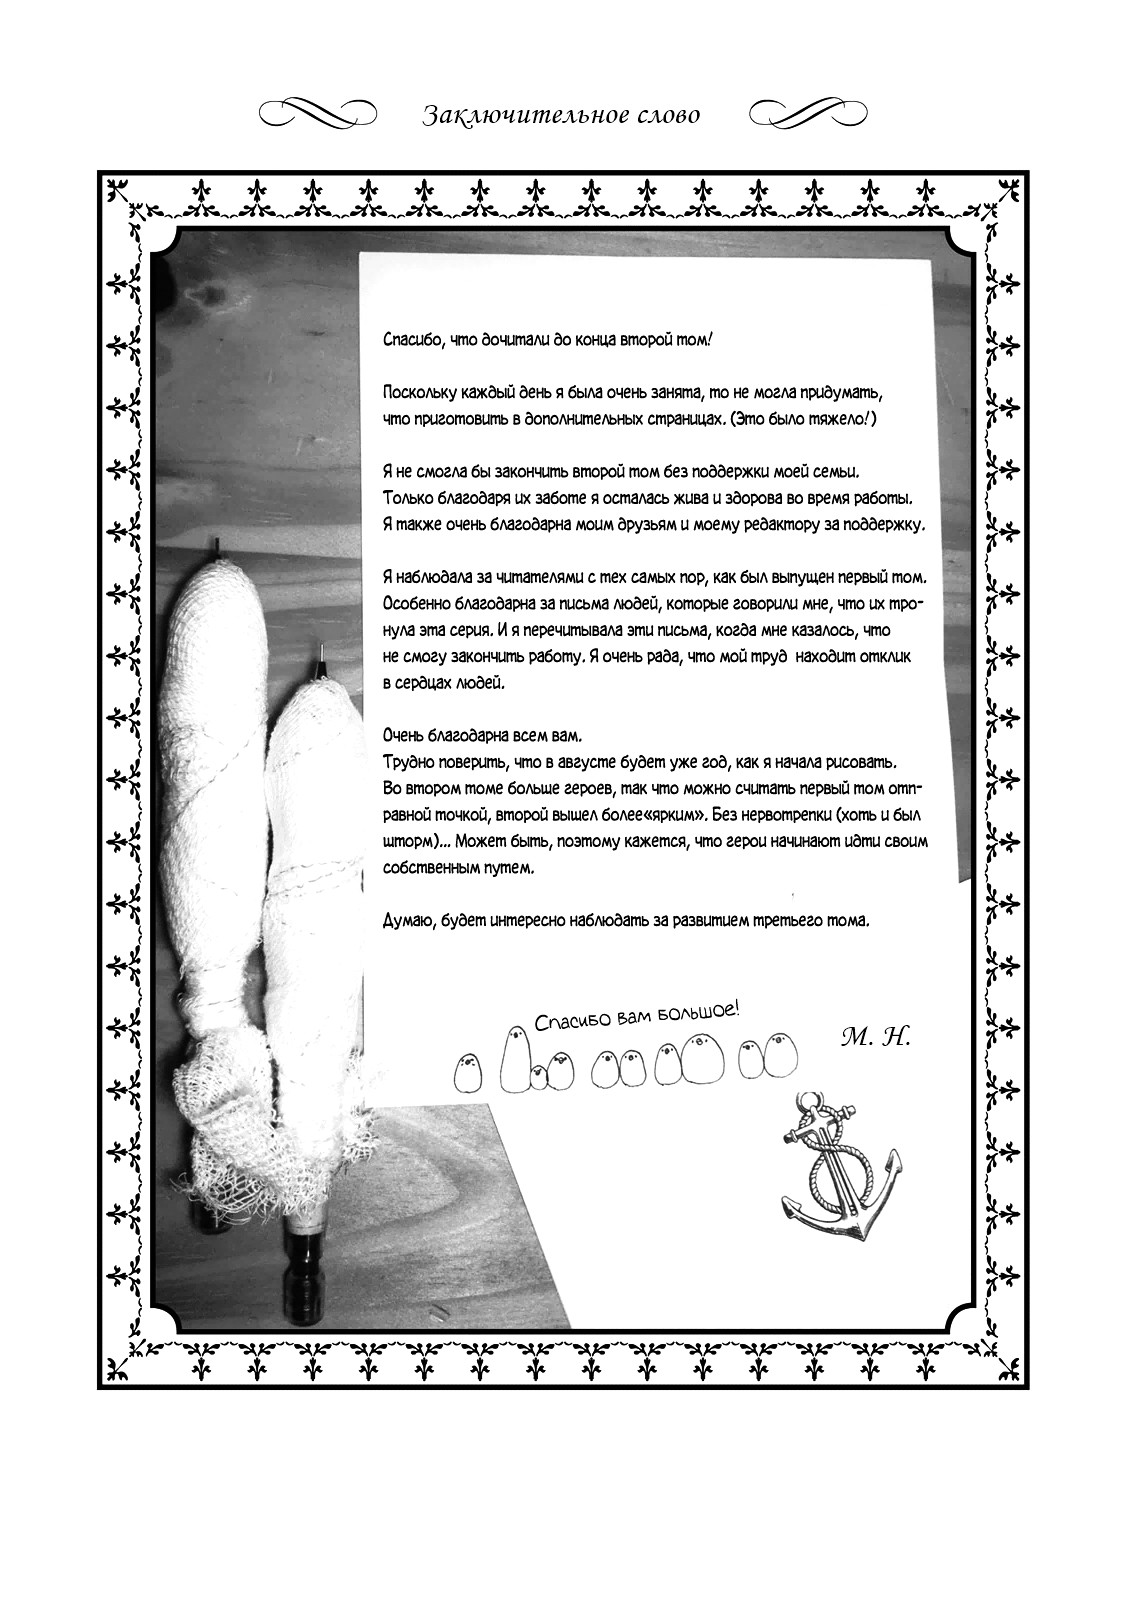 Заключительное слово
Спасибо, что дочитали до конца второй том!
Поскольку каждый день я была очень занята, то не могла придумать,
что приготовить в дополнительных страницах. (Это было тяжело!)
Я не смогла бы закончить второй том без поддержки моей семьи.
Только благодаря их заботе я осталась жива и здорова во время работы.
Я также очень благодарна моим друзьям и моему редактору за поддержку.
Я наблюдала за читателями с тех самых пор, как был выпущен первый том.
Особенно благодарна за письма людей, которые говорили мне, что их тро-
нула эта серия. И я перечитывала эти письма, когда мне казалось, что
не смогу закончить работу. Я очень рада, что мой труд находит отклик
в сердцах людей.
Очень благодарна всем вам.
Трудно поверить, что в августе будет уже год, как я начала рисовать.
Во втором томе больше героев, так что можно считать первый том отп-
равной точкой, второй вышел более«ярким». Без нервотрепки (хоть и был
шторм)... Может быть, поэтому кажется, что герои начинают идти своим
собственным путем.
Думаю, будет интересно наблюдать за развитием третьего тома.
Спасибо вам большое!
М. Н.